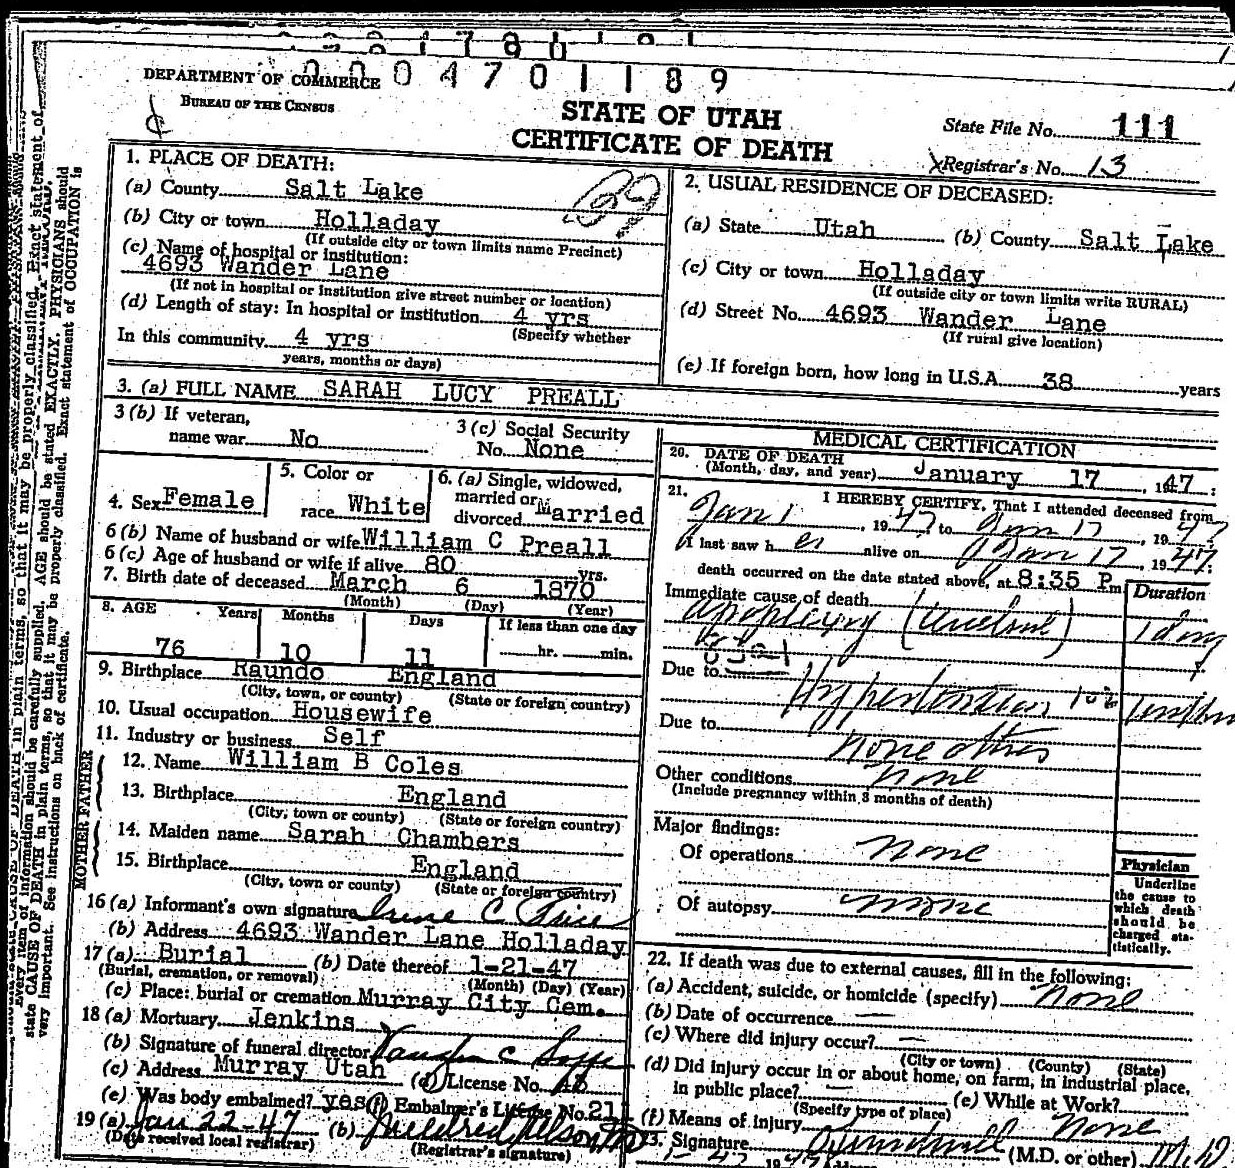 0004701189
DEPARTMENT OF COMMERCE
BUREAU OF THE CENSUS
STATE OF UTAH
CERTIFICATE OF DEATH
State File No. 111
Registrar's No. 13
1. PLACE OF DEATH:
(a) County Salt Lake
(b) City or town Holladay
(If outside city or town limits name Precinct)
(c) Name of hospital or institution:
4693 Wander Lane
(If not in hospital or institution give street number or location)
(d) Length of stay: In hospital or institution 4 yrs
(Specify whether
In this community 4 yrs
years, months or days)
2. USUAL RESIDENCE OF DECEASED:
(a) State Utah (b) County Salt Lake
(c) City or town Holladay
(If outside city or town limits write RURAL)
(d) Street No. 4693 Wander Lane
(If rural give location)
(e) If foreign born, how long in U.S.A. 38 years
3. (a) FULL NAME SARAH LUCY PREALL
3 (b) If veteran,
name war No
3 (c) Social Security
No. None
4. Sex Female
5. Color or
race White
6. (a) Single, widowed,
married or
divorced Married
6 (b) Name of husband or wife William C Preall
6 (c) Age of husband or wife if alive 80 yrs.
7. Birth date of deceased March 6 1870
(Month) (Day) (Year)
8. AGE Years Months Days If less than one day
76 10 11 hr. min.
9. Birthplace Raundo England
(City, town, or county) (State or foreign country)
10. Usual occupation Housewife
11. Industry or business Self
FATHER
12. Name William B Coles
13. Birthplace England
(City, town or county) (State or foreign country)
MOTHER
14. Maiden name Sarah Chambers
15. Birthplace England
(City, town or county) (State or foreign country)
16 (a) Informant's own signature Irene C.
(b) Address 4693 Wander Lane Holladay
17 (a) Burial (b) Date thereof 1-21-47
(Burial, cremation, or removal) (Month) (Day) (Year)
(c) Place: burial or cremation Murray City Cem.
18 (a) Mortuary Jenkins
(b) Signature of funeral director
(c) Address Murray Utah (d) License No.
(e) Was body embalmed? yes (f) Embalmer's License No. 21
19 (a) Jan 22-47 (b) Mildred
(Date received local registrar) (Registrar's signature)
MEDICAL CERTIFICATION
20. DATE OF DEATH
(Month, day, and year) January 17, 1947
21. I HEREBY CERTIFY, That I attended deceased from
Jan 1, 1947 to Jan 17, 1947
I last saw her alive on Jan 17, 1947
death occurred on the date stated above, at 8:35 P m
Duration
Immediate cause of death
apoplexy 1 day
Due to
Hypertension
Due to
none other
Other conditions none
(Include pregnancy within 3 months of death)
Major findings:
Of operations none
Of autopsy none
Physician
Underline
the cause to
which death
should be
charged sta-
tistically.
22. If death was due to external causes, fill in the following:
(a) Accident, suicide, or homicide (specify) None
(b) Date of occurrence —
(c) Where did injury occur? —
(City or town) (County) (State)
(d) Did injury occur in or about home, on farm, in industrial place,
in public place? —
(Specify type of place)
(e) While at Work?
(f) Means of injury None
23. Signature (M.D. or other) M.D.